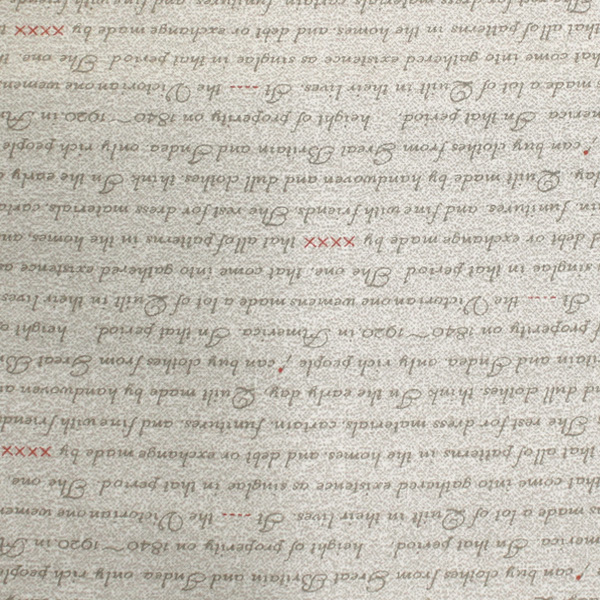 can buy clothes from Great Britain and Indea. only rich people
merica. In that period. height of properity on 1840~1920. in A
made a lot of Quilt in their lives. It ---- the Victorian one wemen
that come into gathered existence as singlae in that period The one.
that all of patterns in the homes. and debt or exchange made by ××××
The rest for dress materials, cartain. funitures. and fine with friend
and dull clothes. think In the early day. Quilt made by handwoven
and Indea. only rich people, can buy clothes from Great B
properity on 1840~1920. in America. In that period. height
It ---- the Victorian one wemens made a lot of Quilt in their lives
singlae in that period The one, that come into gathered existence
debt or exchange made by ×××× that all of patterns in the homes, an
funitures. and fine with friends. The rest for dress materials, carta
day. Quilt made by handwoven and dull clothes. think In the early
can buy clothes from Great Britain and Indea. only rich people
merica. In that period. height of properity on 1840~1920. in A
made a lot of Quilt in their lives. It ---- the Victorian one wemen
that come into gathered existence as singlae in that period The one.
that all of patterns in the homes. and debt or exchange made by ××××